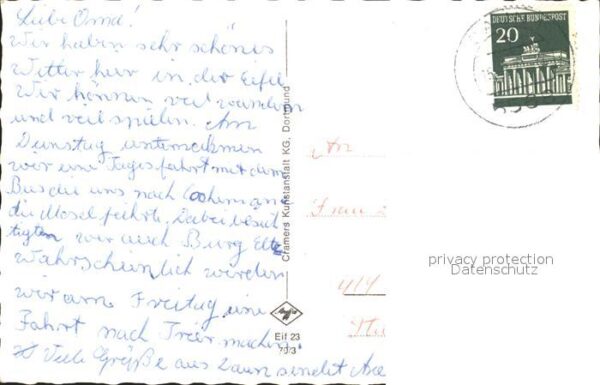 Liebe Oma!
Wir haben sehr schönes
Wetter hier in der Eifel
Wir können viel wandern
und viel spielen. Am
Dienstag unternahmen
wir eine Tagesfahrt mit dem
Bus die uns nach Cochem an
die Mosel führte. Dabei besich
tigten wir auch Burg Eltz
Wahrscheinlich werden
wir am Freitag eine
Fahrt nach Trier machen.
Viele Grüße aus Daun sendet
Cramers Kunstanstalt KG. Dortmund
Eif 23
DEUTSCHE BUNDESPOST
20
An
privacy protection
Datenschutz